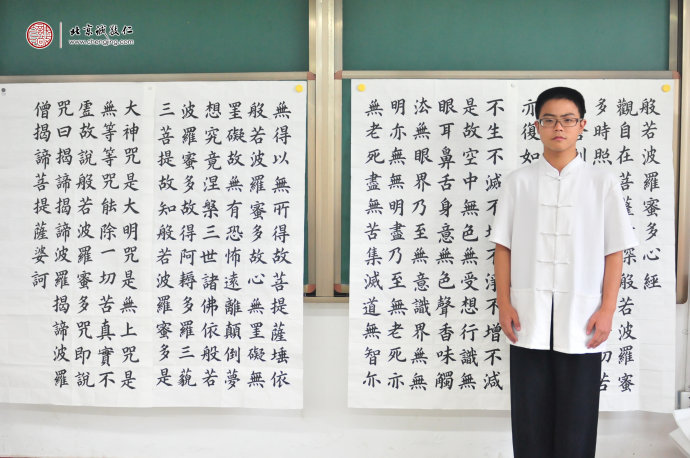 北京誠敬仁
www.chengjing.com
般若波羅蜜多心經
觀自在菩薩深般若波羅蜜
多時照切苦
亦復如
不生不滅不垢不淨不增不減
是故空中無色無受想行識
眼耳鼻舌身意無色聲香味觸
法無眼界乃至無意識界無無
明亦無無明盡乃至無老死亦
無老死盡無苦集滅道無智亦
無得以無所得故菩提薩埵依
般若波羅蜜多故心無罣礙無
罣礙故無有恐怖遠離顛倒夢
想究竟涅槃三世諸佛依般若
波羅蜜多故得阿耨多羅三藐
三菩提故知般若波羅蜜多是
大神咒是大明咒是無上咒是
無等等咒能除一切苦真實不
虛故說般若波羅蜜多咒即說
咒曰揭諦揭諦波羅揭諦波羅
僧揭諦菩提薩婆訶